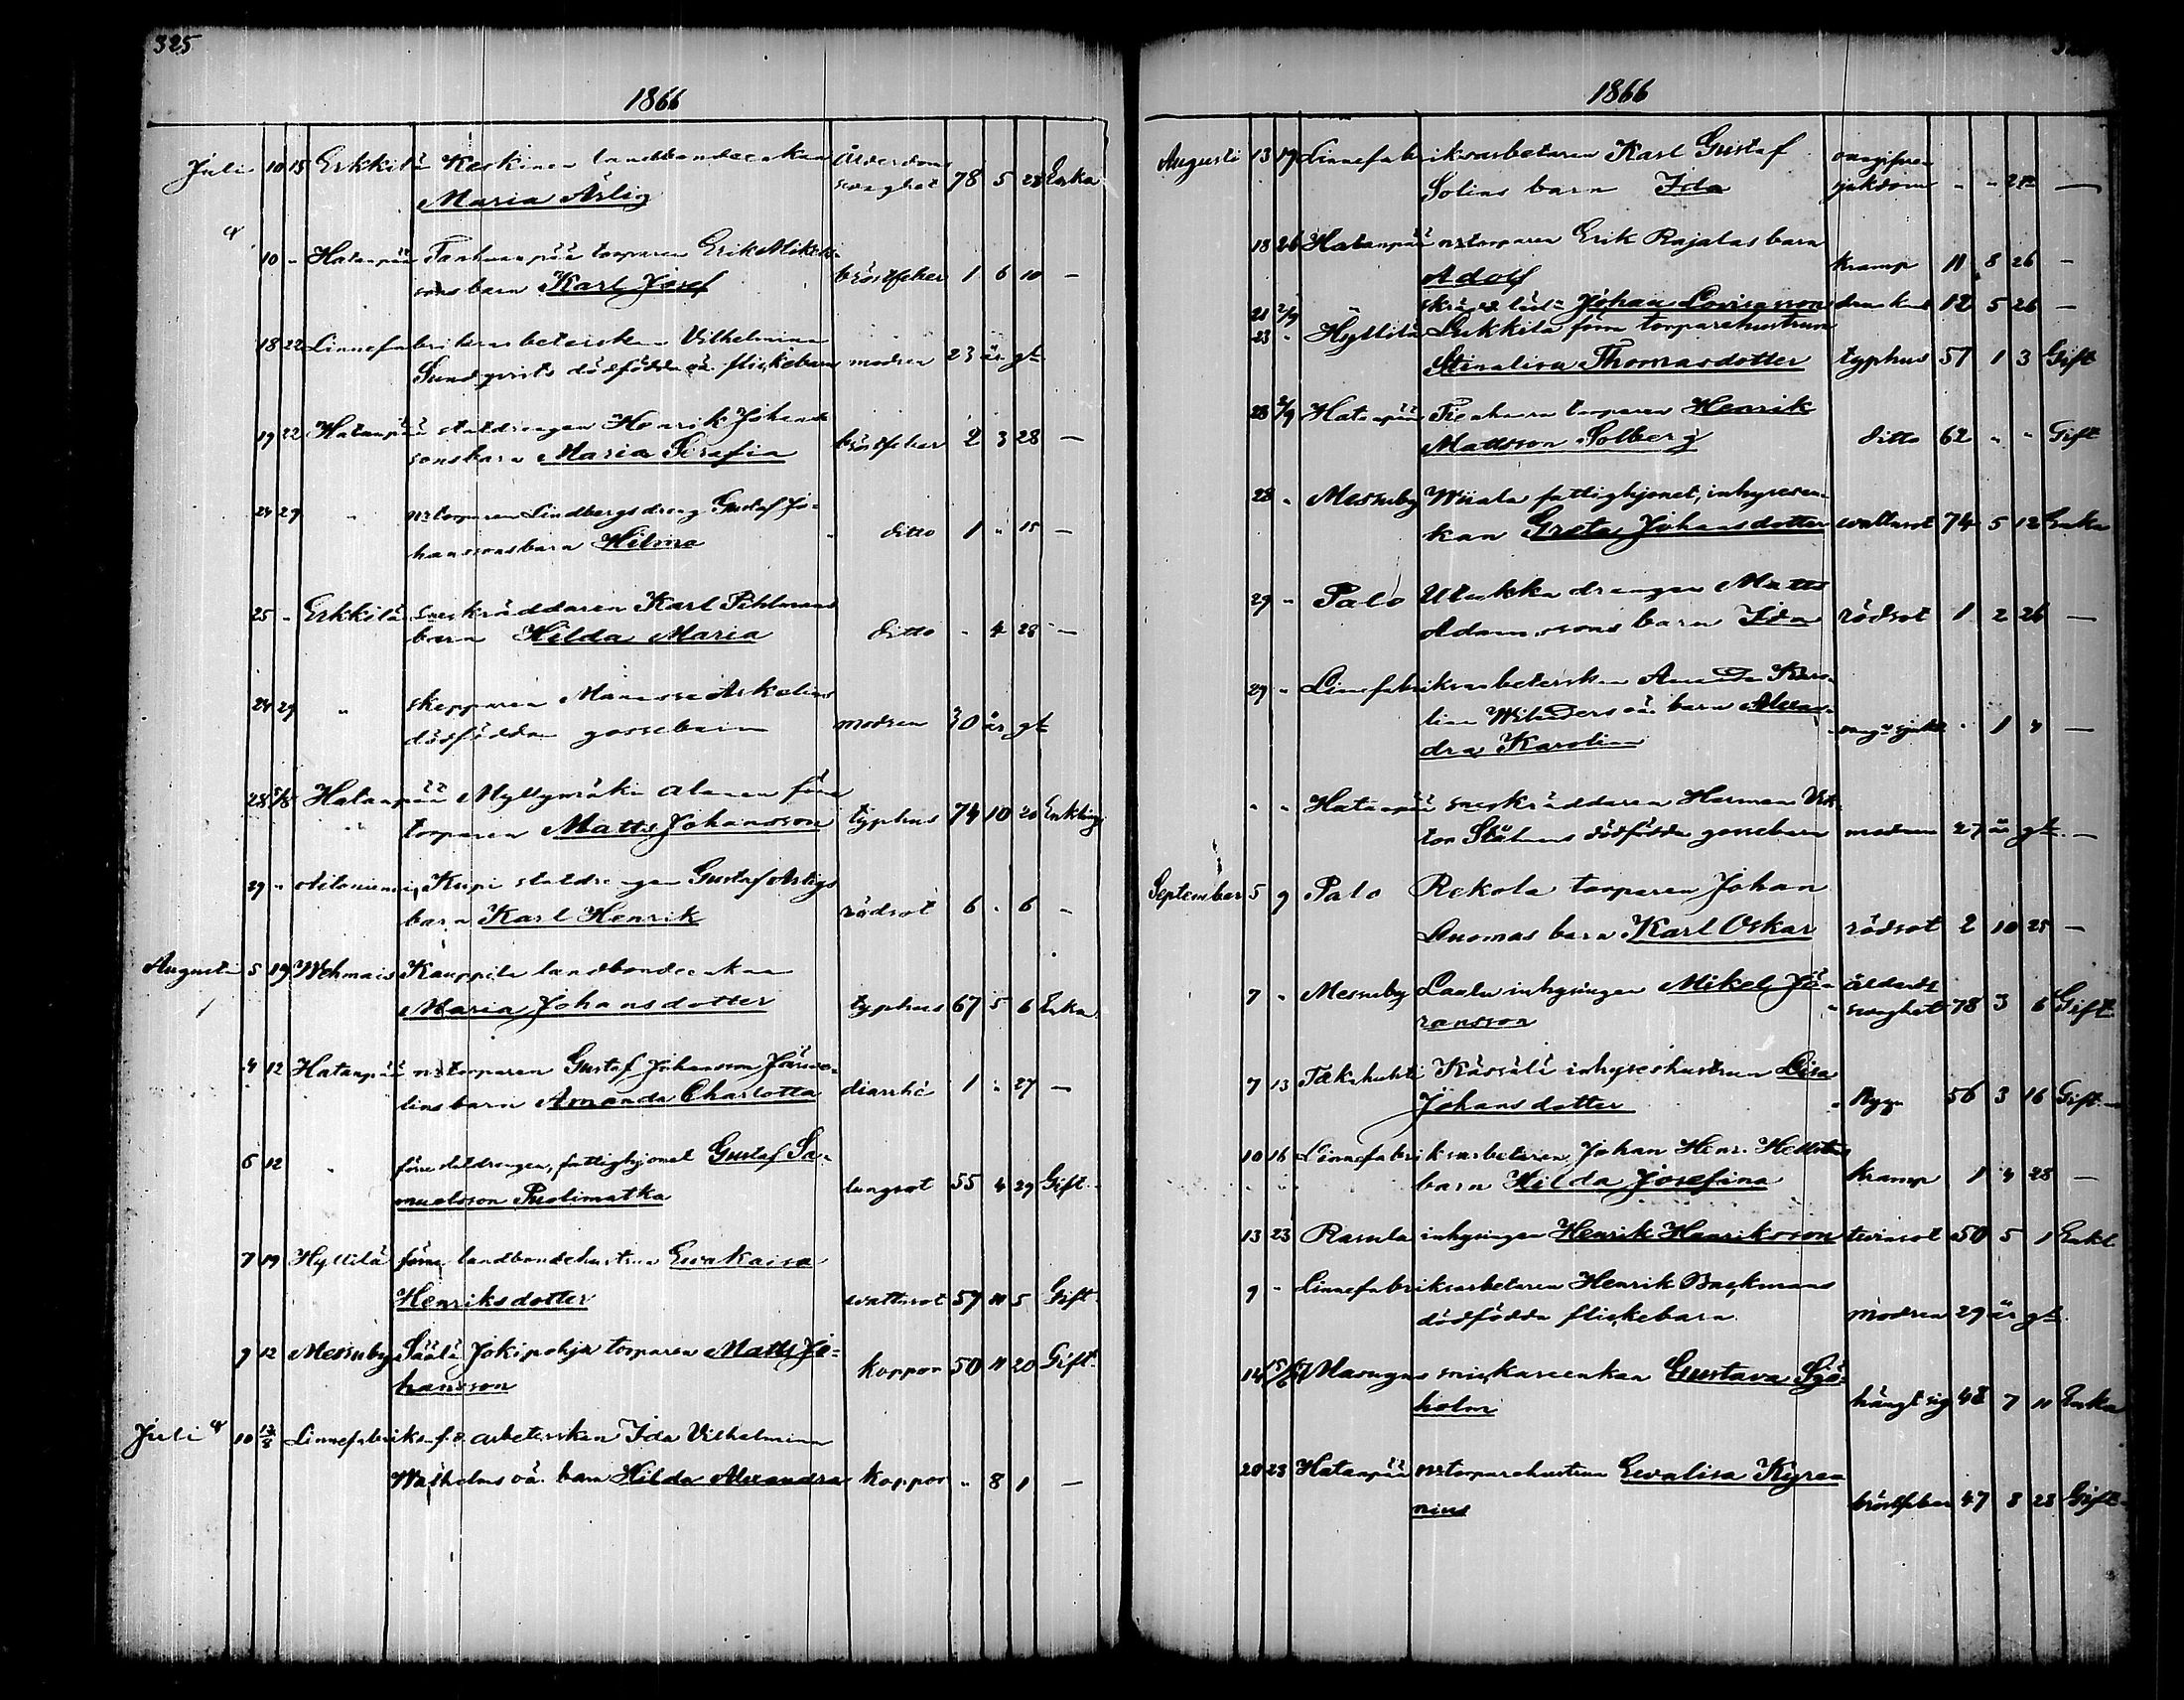 325
1866
Juli 10 15 Erkkilä Keskinen landbondeenkan ålderdoms
Maria Ärlig svaghet 78 5 23 Enka
10 " Hatanpää torparen Erik Mikels-
sons barn Karl Josef bröstfeber 1 6 10 —
18 22 Linnefabriksarbeterskan Vilhelmina
Sundqvists dödfödda oä. flickebarn modren 23 år gl
19 22 Hatanpää statdrengen Henrik Johans-
sons barn Maria Serafia bröstfeber 2 3 28 —
24 29 " torparen Lindbergs dreng Gustaf Jo-
hanssons barn Hilma ditto 1 " 15 —
25 " Erkkilä sneskräddaren Karl Pihlmans
barn Hilda Maria ditto " 4 28 —
24 29 " skepparen Manasse Askolins
dödfödda gossebarn modren 30 år gl
28 5/8 Hatanpää Myllymäki Alanen förre
torparen Matts Johansson typhus 74 10 20 Enkling
29 " Aitoniemi, Kupi statdrengen Gustaf Arligs
barn Karl Henrik rödsot 6 " 6 —
Augusti 5 19 Wehmais Kauppila landbondeenkan
Maria Johansdotter typhus 67 5 6 Enka
4 12 Hatanpää torparen Gustaf Johansson
lins barn Amanda Charlotta diarrhé 1 " 27 —
6 12 " förre statdrengen, fattighjonet Gustaf Sa-
muelsson Puolimatka lungsot 55 4 29 Gift
7 19 Hyllilä förra landbondehustrun Evakaisa
Henriksdotter wattusot 57 11 5 Gift
9 12 Messuby Säälä Jokipohja torparen Matts Jo-
hansson koppor 50 11 20 Gift
Juli 10 12/8 Linnefabriks f.d. arbeterskan Ida Vilhelmina
oä. barn Hilda Alexandra koppor " 8 1 —
1866
Augusti 13 19 Linnefabriksarbetaren Karl Gustaf onagifven
Solins barn Ida sjukdom " " —
18 26 Hatanpää torparen Erik Rajalas barn
Adolf kramp 11 8 26 —
21 2/9 " Johan Lovisasson 12 5 26 —
23 " Hyllilä Lukkila förra torparehustrun
Stinalisa Thomasdotter typhus 57 1 3 Gift
28 2/9 Hatanpää torparen Henrik
Mattsson Solberg ditto 62 " " Gift
28 " Messuby Wiiala fattighjonet, inhysesen-
kan Greta Johansdotter wattusot 74 5 12 Enka
29 " Palo drengen Matts
Adamssons barn Ida rödsot 1 2 26 —
29 " Linnefabriksarbeterskan Amanda Karo-
lina Wilanders oä barn Alexan-
dra Karolina 1 4 —
" " Hatanpää sneskräddaren Herman Vik-
tor Ståhlmans dödfödda gossebarn modren 27 år gl —
September 5 9 Palo Rekola torparen Johan
Luomas barn Karl Oskar rödsot 2 10 25 —
7 " Messuby Laalu inhysingen Mikel Jö-
ransson ålderds svaghet 78 3 6 Gift
7 13 Takahuhti inhyseshustrun Lisa
Johansdotter 56 3 16 Gift
10 16 Linnefabriksarbetaren Johan Henr.
barn Hilda Josefina kramp 1 4 28 —
13 23 Rasula inhysingen Henrik Henriksson tvinsot 50 5 1 Enkl
9 " Linnefabriksarbetaren Henrik Backmans
dödfödda flickebarn. modren 29 år gl.
14 Masugns snickareenkan Gustava Sjö-
holm hängt sig 48 7 11 Enka
20 23 Hatanpää torparehustrun Evalisa Kyrea
nius bröstfeber 47 8 28 Gift